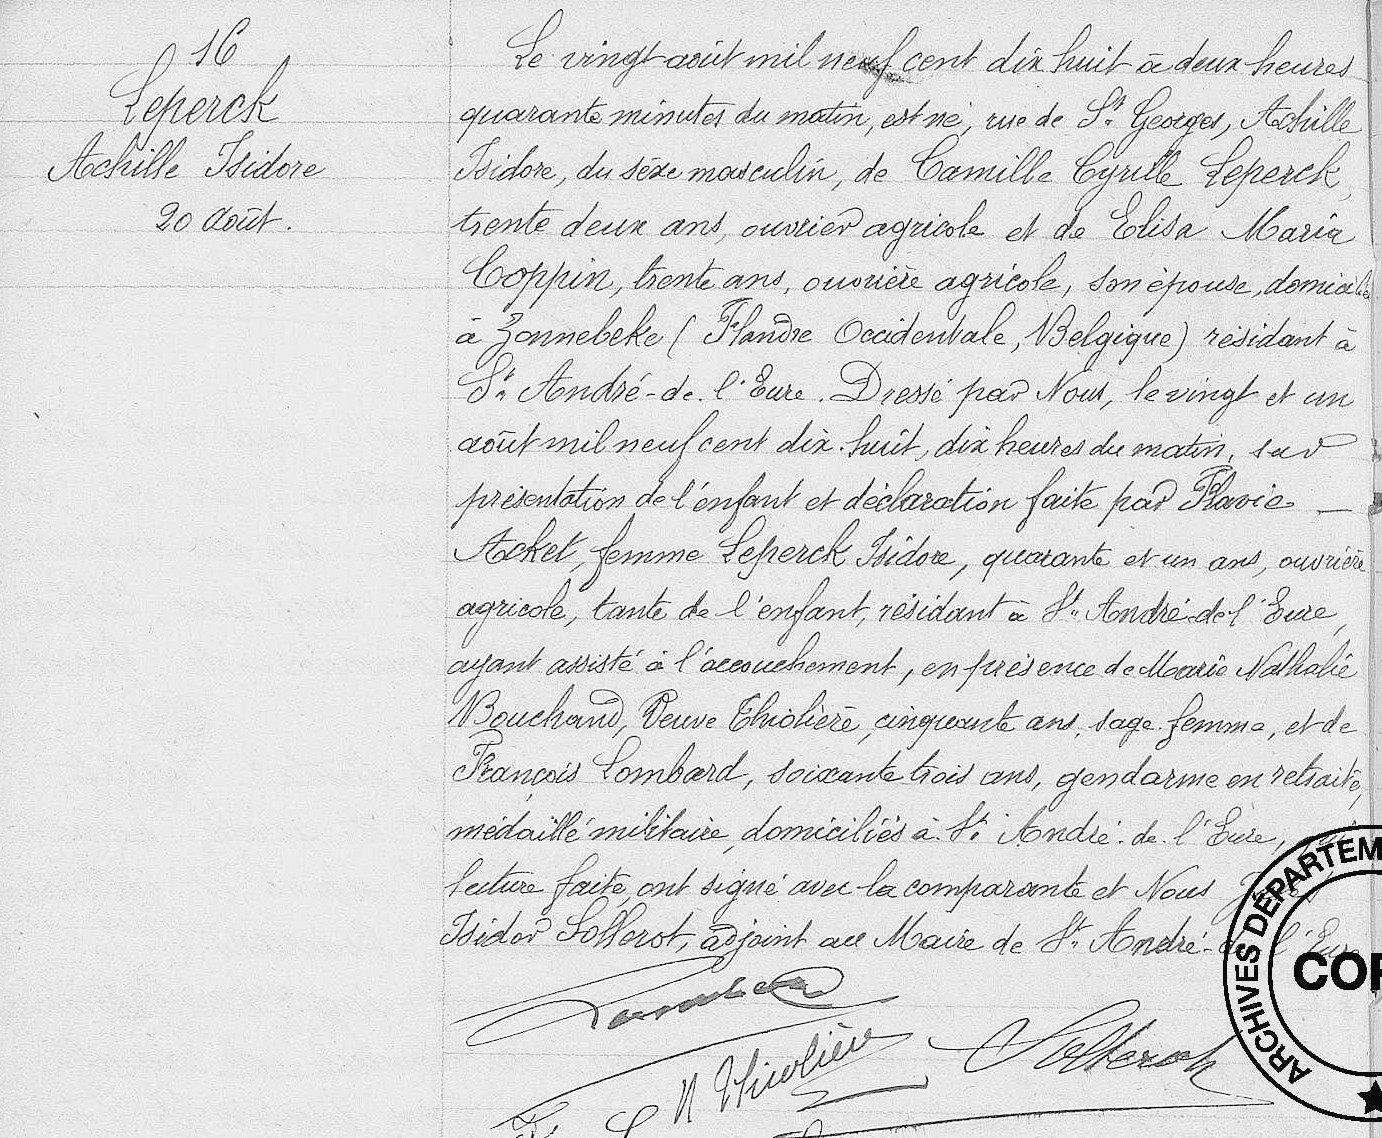 16
Leperck
Achille Isidore
20 Août.
Le vingt août mil neuf cent dix huit à deux heures
quarante minutes du matin, est né, rue de St Georges, Achille
Isidore, du sexe masculin, de Camille Cyrille Leperck,
trente deux ans, ouvrier agricole et de Elisa Maria
Coppin, trente ans, ouvrière agricole, son épouse, domiciliés
à Zonnebeke (Flandre Occidentale, Belgique) résidant à
St André-de-l'Eure. Dressé par Nous, le vingt et un
août mil neuf cent dix-huit, dix heures du matin, sur
présentation de l'enfant et déclaration faite par Flavie
Acket, femme Leperck Isidore, quarante et un ans, ouvrière
agricole, tante de l'enfant, résidant à St André-de l'Eure,
ayant assisté à l'accouchement, en présence de Marie Nathalie
Bouchand, Veuve Thiolière, cinquante ans, sage-femme, et de
François Lombard, soixante trois ans, gendarme en retraite,
médaillé militaire, domiciliés à St André-de-l'Eure,
lecture faite, ont signé avec la comparante et Nous
Isidor Sollerot, adjoint au Maire de St André-de l'Eure
Lombard
N Thiolière
Sollerot
ARCHIVES DÉPARTEM
COP